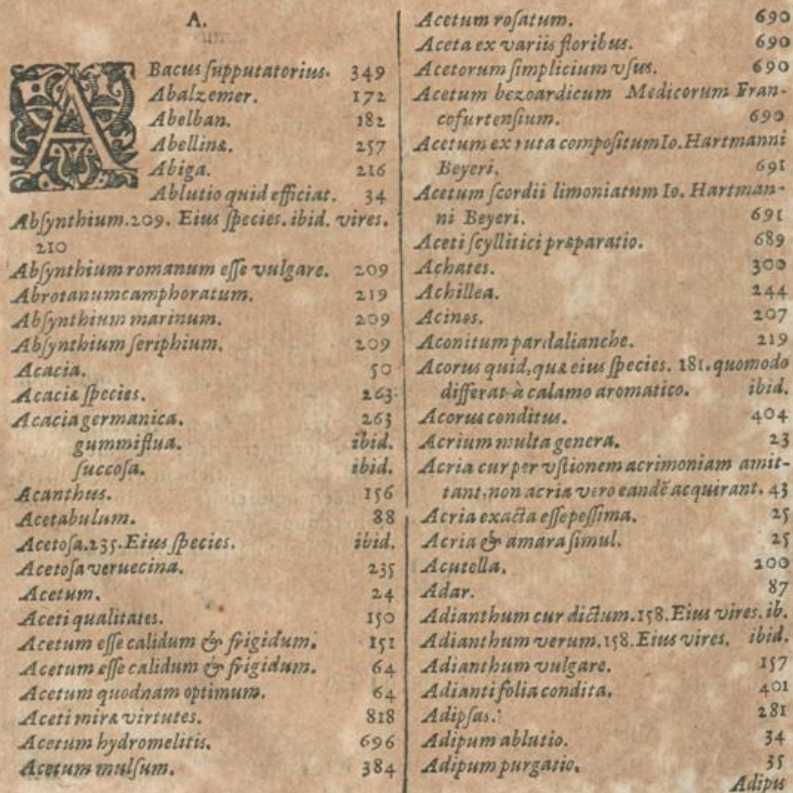 A.
ABacus ſupputatorius. 349
Abalzemer. 172
Abelban. 182
Abellina. 257
Abiga. 216
Ablutio quid efficiat. 34
Abſynthium. 209. Eius ſpecies. ibid. vires.
210
Abſynthium romanum eſſe vulgare. 209
Abrotanum camphoratum. 219
Abſynthium marinum. 209
Abſynthium ſeriphium. 209
Acacia. 50
Acaciæ ſpecies. 263
Acacia germanica. 263
gummiflua. ibid.
ſuccoſa. ibid.
Acanthus. 156
Acetabulum. 88
Acetoſa. 235. Eius ſpecies. ibid.
Acetoſa veruecina. 235
Acetum. 24
Aceti qualitates. 150
Acetum eſſe calidum & frigidum. 151
Acetum eſſe calidum & frigidum. 64
Acetum quodnam optimum. 64
Aceti miræ virtutes. 818
Acetum hydromelitis. 696
Acetum mulſum. 384
Acetum roſatum. 690
Aceta ex variis floribus. 690
Acetorum ſimplicium vſus. 690
Acetum bezoardicum Medicorum Fran-
cofurtenſium. 690
Acetum ex ruta compoſitum Io. Hartmanni
Beyeri. 691
Acetum ſcordii limoniatum Io. Hartman-
ni Beyeri. 691
Aceti ſcyllitici præparatio. 689
Achates. 300
Achillea. 244
Acinos. 207
Aconitum pardalianche. 219
Acorus quid, quæ eius ſpecies. 181. quomodo
differat à calamo aromatico. ibid.
Acorus conditus. 404
Acrium multa genera. 23
Acria cur per vſtionem acrimoniam amit-
tant, non acria vero eandē acquirant. 43
Acria exacta eſſe peſſima. 25
Acria & amara ſimul. 25
Acutella. 200
Adar. 87
Adianthum cur dictum. 158. Eius vires. ib.
Adianthum verum. 158. Eius vires. ibid.
Adianthum vulgare. 157
Adianti folia condita. 401
Adipſas. 281
Adipum ablutio. 34
Adipum purgatio. 35
Adipis